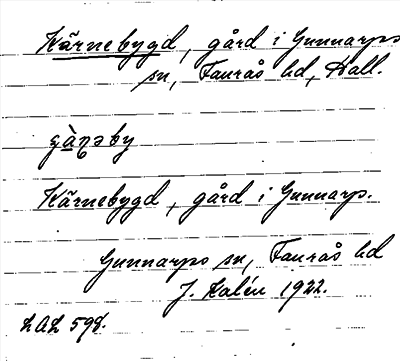 Kärnebygd, gård i Gunnarps
sn, Faurås hd, Hall.
Kärnebygd, gård i Gunnarp.
Gunnarps sn, Faurås hd
J. Kalén 1922.
LAL 598.